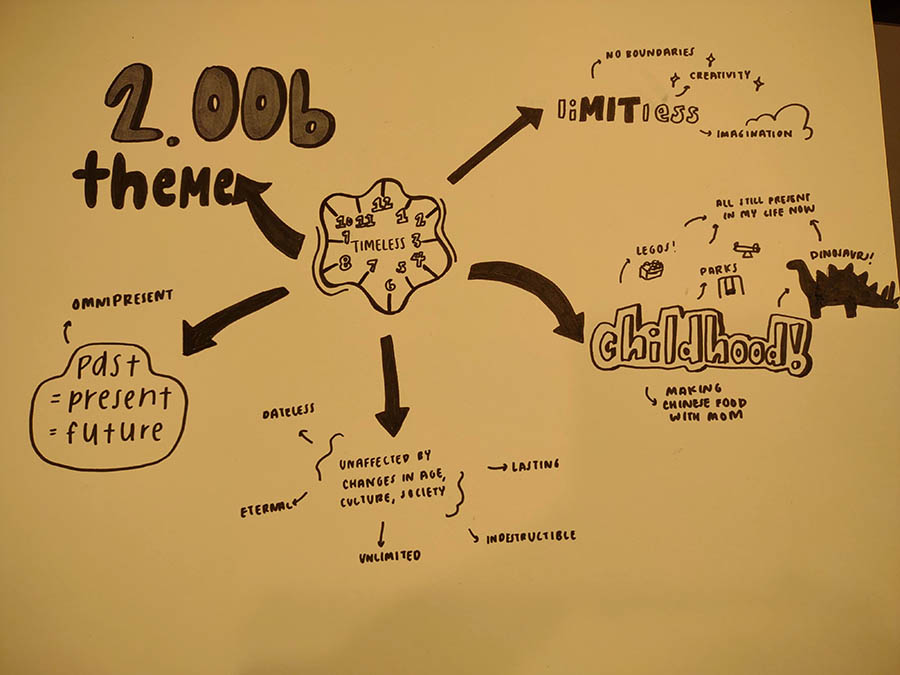 2.00b
theme
12
10 11 1 2
9 TIMELESS 3
8 7 5 4
6
NO BOUNDARIES
CREATIVITY
liMITless
IMAGINATION
ALL STILL PRESENT
IN MY LIFE NOW
LEGOS!
PARKS
DINOSAURS!
childhood!
MAKING
CHINESE FOOD
WITH MOM
OMNIPRESENT
past
= present
= future
DATELESS
UNAFFECTED BY
CHANGES IN AGE,
CULTURE, SOCIETY
LASTING
ETERNAL
INDESTRUCTIBLE
UNLIMITED